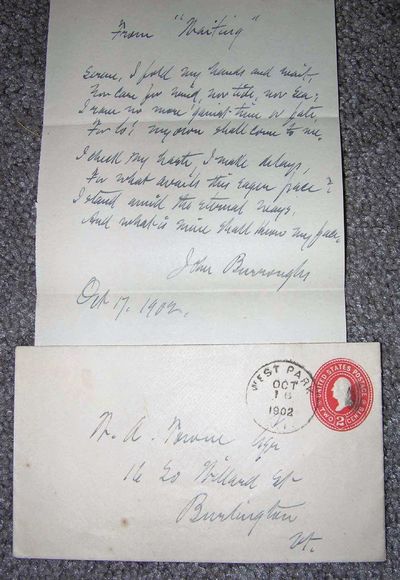 From "Waiting"
Serene, I fold my hands and wait,
Nor care for wind, nor tide, nor sea;
I rave no more 'gainst time or fate,
For lo! my own shall come to me.
I check my haste, I make delays,
For what avails this eager pace?
I stand amid the eternal ways,
And what is mine shall know my face.
John Burroughs
Oct 17, 1902.
WEST PARK
OCT
1902
N.Y.
UNITED STATES POSTAGE
2
TWO CENTS
A.
Willard St
Burlington
Vt.